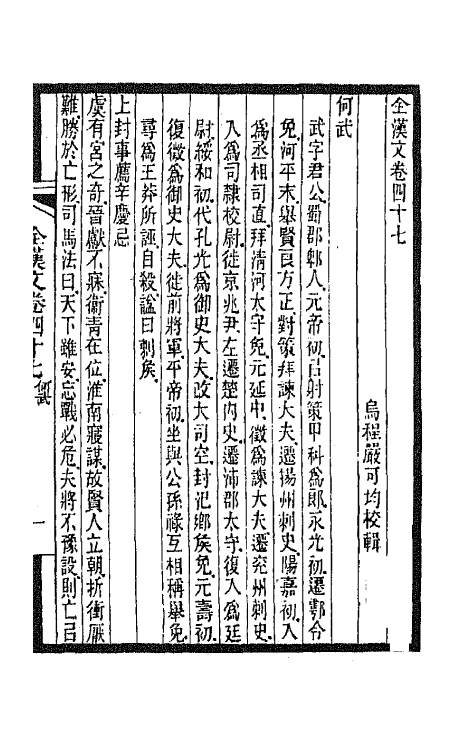 全漢文卷四十七
烏程嚴可均校輯
何武
武字君公蜀郡郫人元帝初㠯射策甲科爲郎永光初遷鄠令
免河平末舉賢良方正對策拜諫大夫遷揚州刺史陽嘉初入
爲丞相司直拜清河太守免元延中徵爲諫大夫遷兗州刺史
入爲司隸校尉徙京兆尹左遷楚內史遷沛郡太守復入爲廷
尉綏和初代孔光爲御史大夫改大司空封氾鄉矦免元壽初
復徵爲御史大夫徙前將軍平帝初坐與公孫祿互相稱舉免
尋爲王莽所誣自殺謚曰刺矦
上封事薦辛慶忌
虞有宮之奇晉獻不寐衞青在位淮南寢謀故賢人立朝折衝厭
難勝於亡形司馬法曰天下雖安忘戰必危夫將不豫設則亡㠯
全漢文卷四十七 何武 一